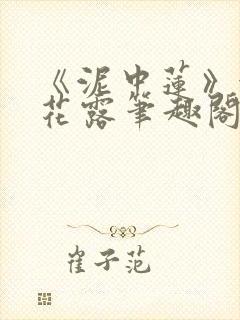 《泥中蓮》
花露笔趣閣
崔子范